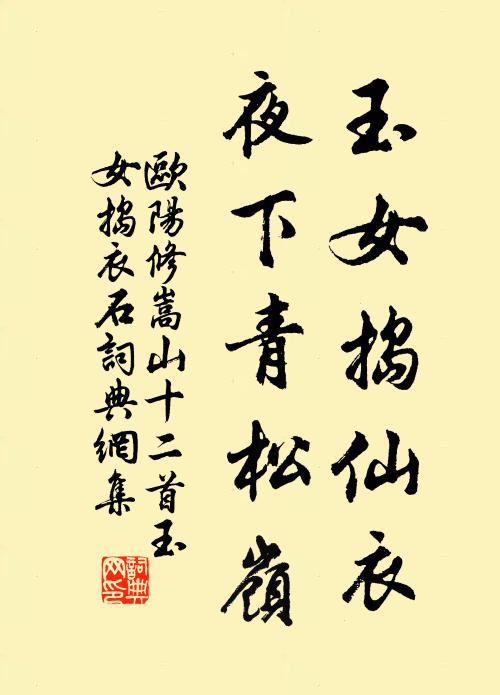 玉女搗仙衣
夜下青松嶺
歐陽修嵩山十二首玉
女搗衣石詞典網集
詞典
网印